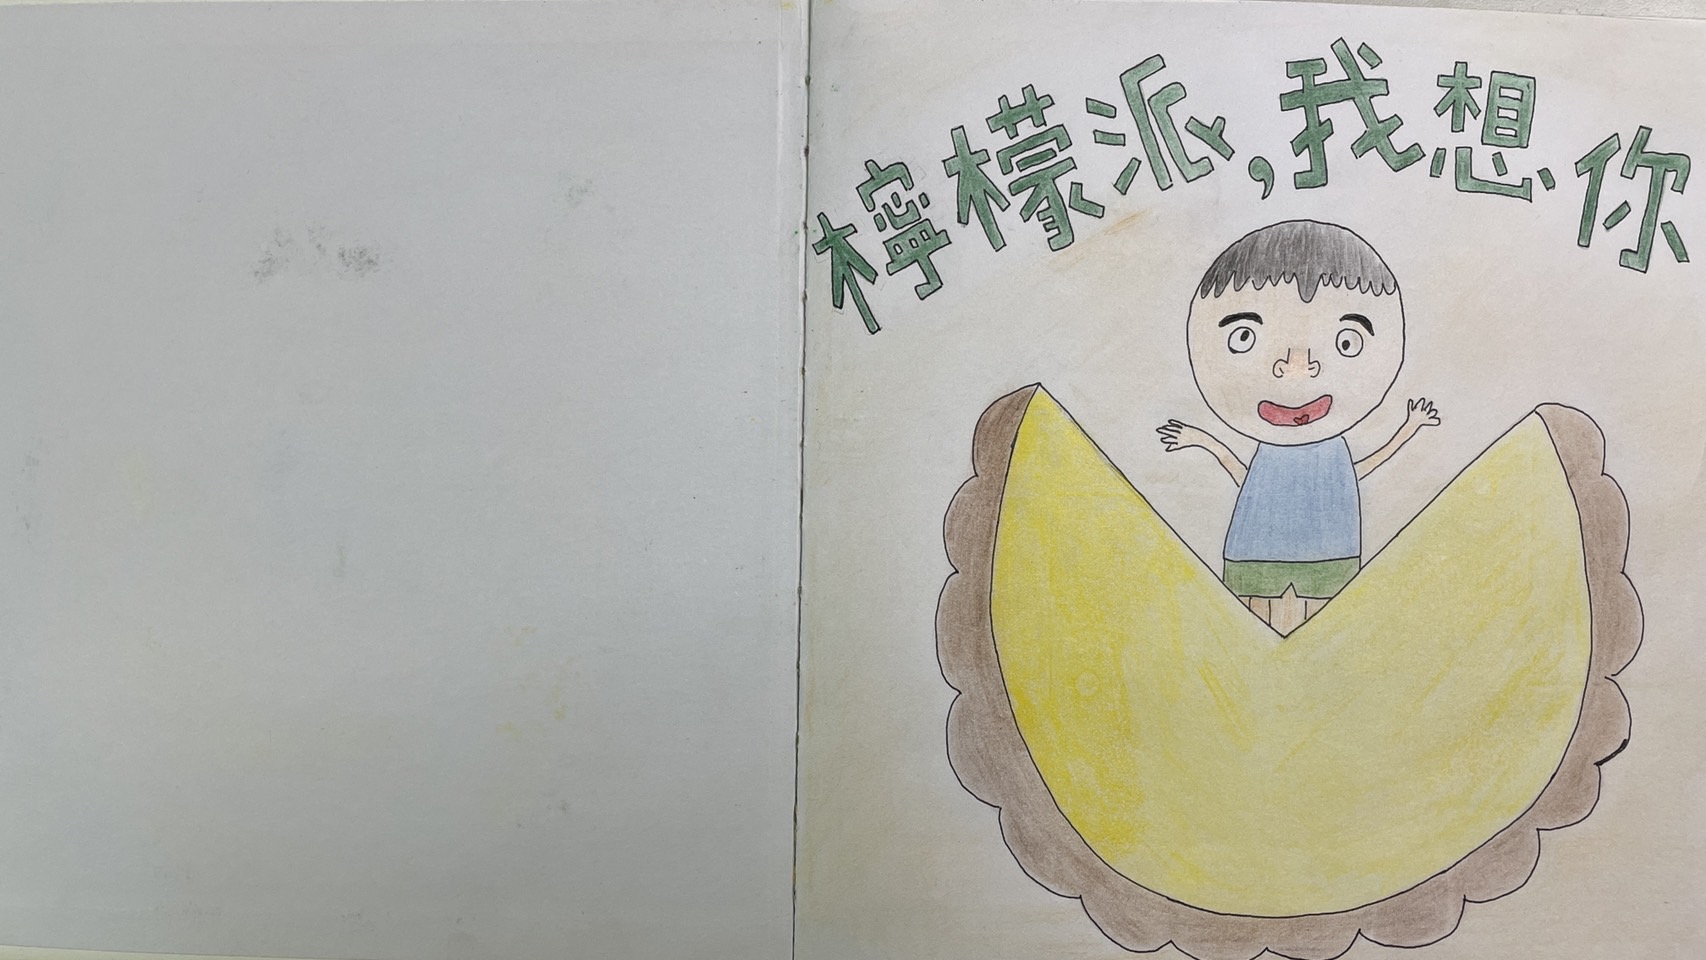 檸檬派,我想你